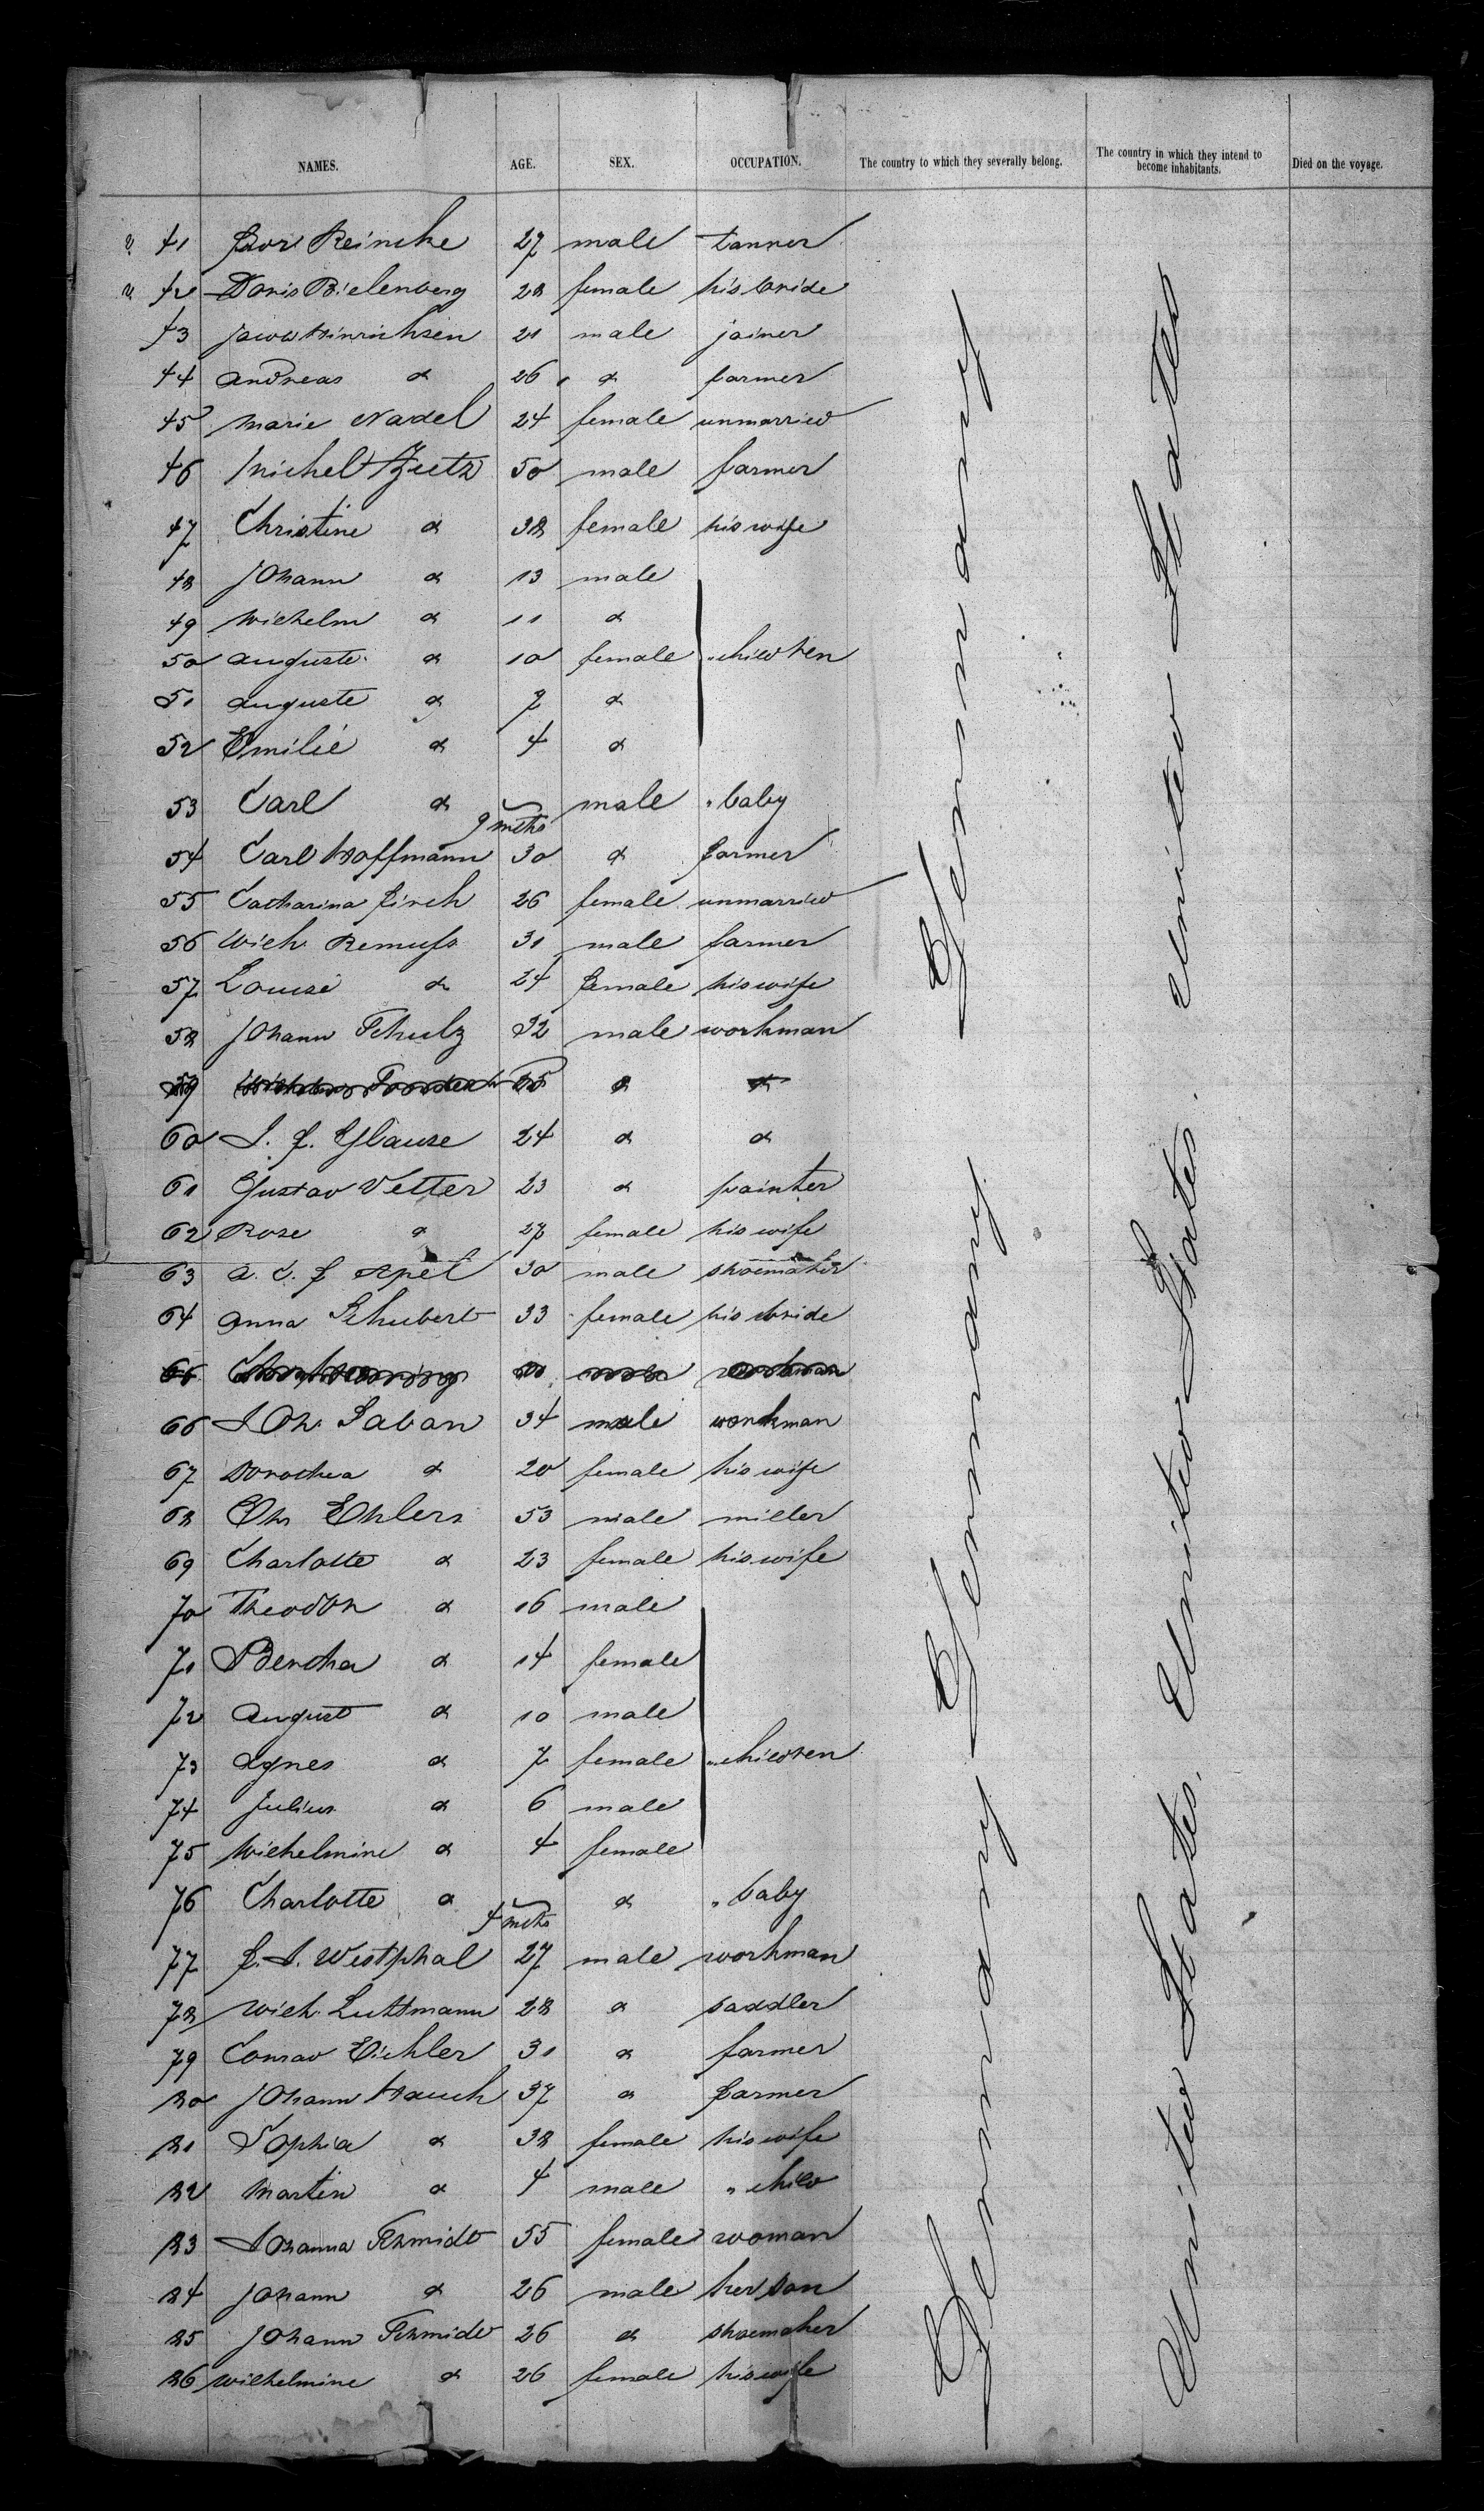 NAMES. AGE. SEX. OCCUPATION. The country to which they severally belong. The country in which they intend to become inhabitants. Died on the voyage.
41 Reincke 27 male tanner
42 Doris Bielenberg 28 female his bride
43 Hinrichsen 21 male joiner
44 Andreas do 26 do farmer
45 Marie Nadel 24 female unmarried
46 Michel 50 male farmer
47 Christine do 38 female his wife
48 Johann do 13 male
49 Wilhelm do 11 do
50 Auguste do 10 female " children
51 Auguste do 7 do
52 Emilie do 4 do
53 Carl do 9 mths male " baby
54 Carl Hoffmann 30 do farmer
55 Catharina 26 female unmarried
56 Wilh. Remuss 31 male farmer
57 Louise do 24 female his wife
58 Johann Schulz 32 male workman
59 do do
60 J. F. Glause 24 do do
61 Gustav Vetter 23 do painter
62 Rose do 27 female his wife
63 A. C. F. Apel 30 male shoemaker
64 Anna Schubert 33 female his bride
65
66 Joh. Saban 34 male workman
67 Dorothea do 20 female his wife
68 Chr Ehlers 53 male miller
69 Charlotte do 23 female his wife
70 Theodor do 16 male
71 Bertha do 14 female
72 August do 10 male
73 Agnes do 7 female " children
74 Julius do 6 male
75 Wilhelmine do 4 female
76 Charlotte do 4 mths do " baby
77 F. J. Westphal 27 male workman
78 Wilh. Luttmann 28 do saddler
79 Conrad Eichler 31 do farmer
80 Johann Hauch 37 do farmer
81 Sophia do 38 female his wife
82 Martin do 4 male " child
83 Johanna Schmidt 55 female woman
84 Johann do 26 male her son
85 Johann Schmidt 26 do shoemaker
86 Wilhelmine do 26 female his wife
Germany Germany Germany
United States. United States. United States